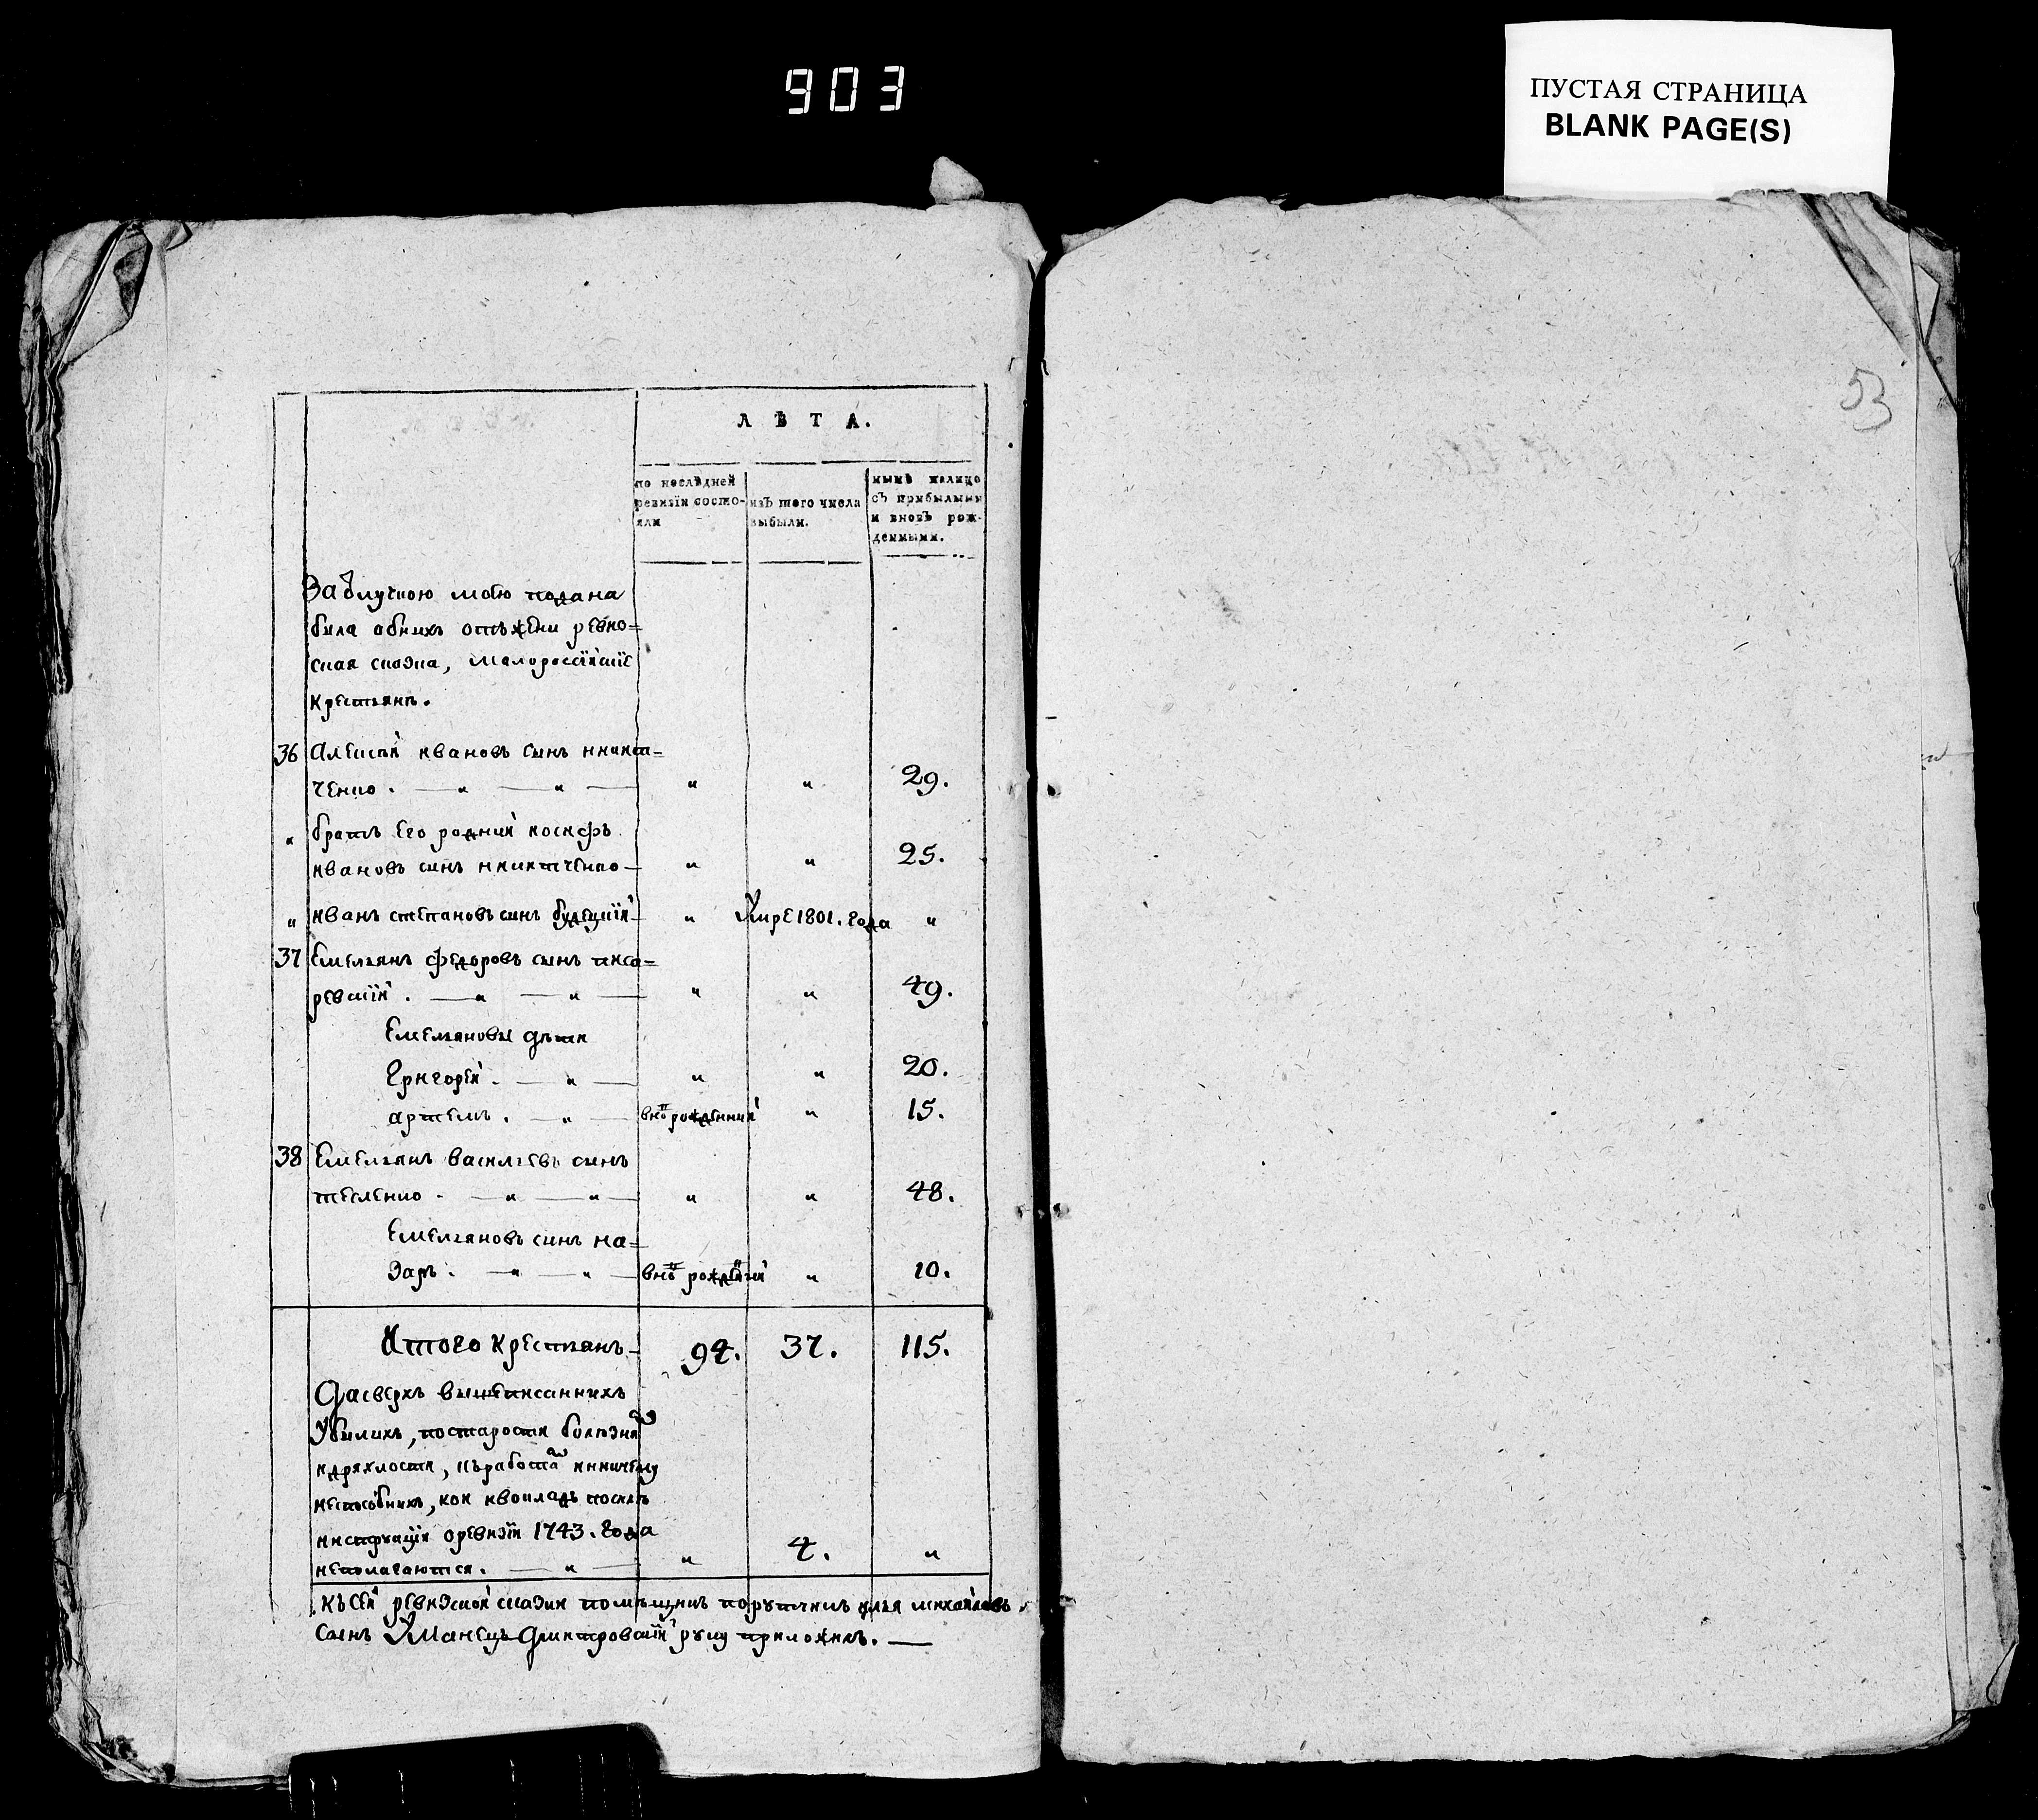 903
ПУСТАЯ СТРАНИЦА
BLANK PAGE(S)
53
ЛѢТА.
по последней ревизіи состояли
изъ того числа выбыли.
нынѣ налицо съ прибылыми и вновь рожденными.
За отлучкою моею подана
была обнихъ отъ жени
ская сказка, малороссійскіе
крестьянъ.
36 Алексѣй ивановъ сынъ никит=
ченко. — „ — „ — „ „ 29.
„ братъ его родний иосифъ
ивановъ синъ никитченко — „ „ 25.
„ иванъ степановъ синъ — „ Умре 1801. года „
37 Емельянъ федоровъ сынъ писа=
ревскій. — „ — „ — „ „ 49.
Емельяновы дѣти
Григорей. — „ — „ „ 20.
артемъ. — „ — вно рожденний „ 15.
38 Емельянъ васильевъ синъ
тесленко. — „ — „ — „ „ 48.
Емельяновъ синъ на=
заръ. — „ — „ — вно рожденний „ 10.
Итого крестьянъ — 94. 37. 115.
Да сверхъ вышеписаннихъ
Убилихъ, постарости болезнямъ
идряхлости, къработамъ ининичему
неспособнихъ, кои ивокладъ посилѣ
инструкціи оревизіи 1743. года
неполагаются. — „ — „ 4. „
Къ сей ревизской сказки помѣщикъ порутчикъ илья михайловъ
синъ Уманецъ Дмитровскій руку приложилъ. —